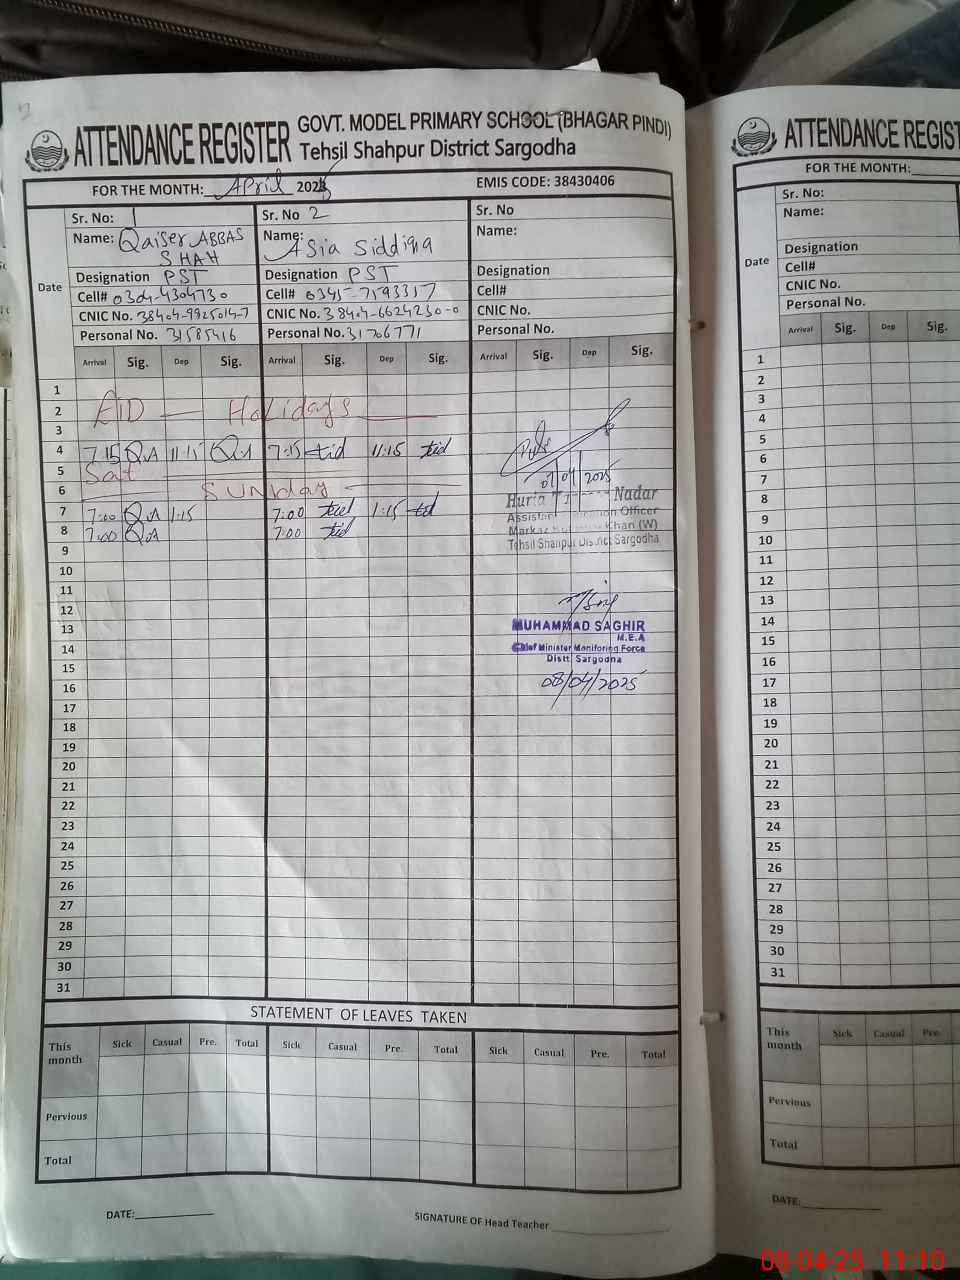 ATTENDANCE REGISTER GOVT. MODEL PRIMARY SCHOOL (BHAGAR PINDI)
Tehsil Shahpur District Sargodha
FOR THE MONTH: April 2025 EMIS CODE: 38430406
Date
Sr. No: 1 Sr. No 2 Sr. No
Name: Qaiser ABBAS SHAH Name: Asia Siddiqa Name:
Designation PST Designation PST Designation
Cell# 0304-4304730 Cell# 0345-7593357 Cell#
CNIC No. 38404-9925014-7 CNIC No. 38404-6624230-0 CNIC No.
Personal No. 31585416 Personal No. 31706771 Personal No.
Arrival Sig. Dep Sig. Arrival Sig. Dep Sig. Arrival Sig. Dep Sig.
1
2 EID — Holidays
3
4 7:15 Q.A 11:15 Q.A 7:15 11:15
5 Sat
6 SUNday
7 7:00 Q.A 1:15 7:00 1:15
8 7:00 Q.A 7:00
9
10
11
12
13
14
15
16
17
18
19
20
21
22
23
24
25
26
27
28
29
30
31
07/04/2025
Huria Nadar
Assistant Education Officer
Markaz Khan (W)
Tehsil Shahpur District Sargodha
MUHAMMAD SAGHIR
M.E.A
Chief Minister Monitoring Force
Distt. Sargodha
08/04/2025
STATEMENT OF LEAVES TAKEN
This month Sick Casual Pre. Total Sick Casual Pre. Total Sick Casual Pre. Total
Pervious
Total
DATE: SIGNATURE OF Head Teacher
ATTENDANCE REGIST
FOR THE MONTH:
Date
Sr. No:
Name:
Designation
Cell#
CNIC No.
Personal No.
Arrival Sig. Dep Sig.
1
2
3
4
5
6
7
8
9
10
11
12
13
14
15
16
17
18
19
20
21
22
23
24
25
26
27
28
29
30
31
This month Sick Casual Pre.
Pervious
Total
DATE:
08-04-25 11:10